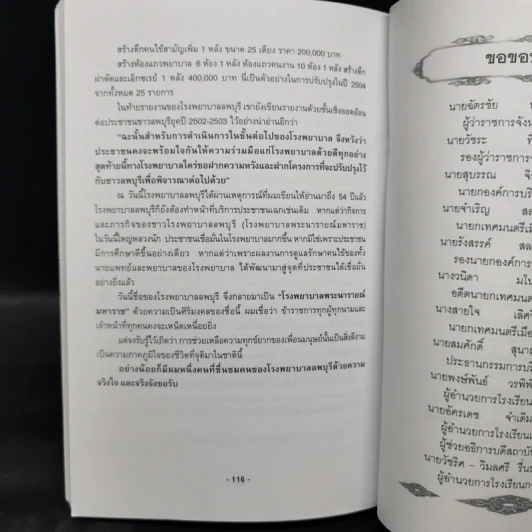 สร้างตึกคนไข้สามัญเพิ่ม 1 หลัง ขนาด 25 เตียง ราคา 200,000 บาท
สร้างห้องแถวพยาบาล 6 ห้อง 1 หลัง ห้องแถวคนงาน 10 ห้อง 1 หลัง สร้างตึก
ผ่าตัดและเอ็กซเรย์ 1 หลัง 400,000 บาท นี่เป็นตัวอย่างในการปรับปรุงในปี 2504
จากทั้งหมด 25 รายการ
ในท้ายรายงานของโรงพยาบาลลพบุรี เขายังเขียนรายงานด้วยชั้นเชิงออดอ้อน
ต่อประชาชาวลพบุรียุคปี 2502-2503 ไว้อย่างน่าอ่านอีกว่า
"ฉะนั้นสำหรับการดำเนินการในขั้นต่อไปของโรงพยาบาล จึงหวังว่า
ประชาชนคงจะพร้อมใจกันให้ความร่วมมือแก่โรงพยาบาลด้วยดีทุกอย่าง
สุดท้ายนี้ทางโรงพยาบาลใคร่ขอฝากความหวังและฝากโครงการที่จะปรับปรุงไว้
กับชาวลพบุรีเพื่อพิจารณาต่อไปด้วย"
ณ วันนี้โรงพยาบาลลพบุรีได้ผ่านเหตุการณ์ที่ผมเขียนให้อ่านมาถึง 54 ปีแล้ว
โรงพยาบาลลพบุรีก็ยังต้องทำหน้าที่บริการประชาชนเฉกเช่นเดิม หากแต่ว่ากิจการ
และภารกิจของชาวโรงพยาบาลลพบุรี (โรงพยาบาลพระนารายณ์มหาราช)
ในวันนี้ใหญ่หลวงนัก ประชาชนเชื่อมั่นในโรงพยาบาลมากขึ้น หากมิใช่เพราะประชาชน
มีการศึกษาดีขึ้นอย่างเดียว หากแต่ว่าเพราะผลงานการดูแลรักษาคนไข้ของทั้ง
นายแพทย์และพยาบาลของโรงพยาบาล ได้พัฒนามาสู่จุดที่ประชาชนได้เชื่อมั่น
อย่างยิ่งแล้ว
วันนี้ชื่อของโรงพยาบาลลพบุรี จึงกลายมาเป็น "โรงพยาบาลพระนารายณ์
มหาราช" ด้วยความเป็นศิริมงคลของชื่อนี้ ผมเชื่อว่า ข้าราชการทุกผู้ทุกนามและ
เจ้าหน้าที่ทุกคนคงจะเหน็ดเหนื่อยยิ่ง
แต่จงรับรู้ไว้เถิดว่า การช่วยเหลือความทุกข์ยากของเพื่อนมนุษย์นั้นเป็นสิ่งดีงาม
เป็นความภาคภูมิใจของชีวิตที่จุติมาในชาตินี้
อย่างน้อยก็มีผมหนึ่งคนที่ชื่นชมคนของโรงพยาบาลลพบุรีด้วยความ
จริงใจ และจริงจังขอรับ
- 116 -
ขอขอบ
นายฉัตรชัย
ผู้ว่าราชการจัง
นายวัชระ
รองผู้ว่าราชการ
นายสุบรรณ จิ
นายกองค์การบริ
นายจำเริญ สล
นายกเทศมนตรีเมื
นายรังสรรค์ สล
รองนายกองค์การ
นางวนิดา มโน
อดีตนายกเทศมน
นางสายใจ เลิศ
นายกเทศมนตรีเมือ
นายสมศักดิ์ สุนา
ประธานกรรมการบริ
นายพงษ์พันธ์ วรพิพั
ผู้อำนวยการโรงเรีย
นายอัครเดช จำเดิม
ผู้อำนวยการโรงเรียน
ผู้ช่วยอธิการบดีสถาบั
นายวัชริศ - วิมลศรี รื่น
ผู้อำนวยการโรงเรียนก